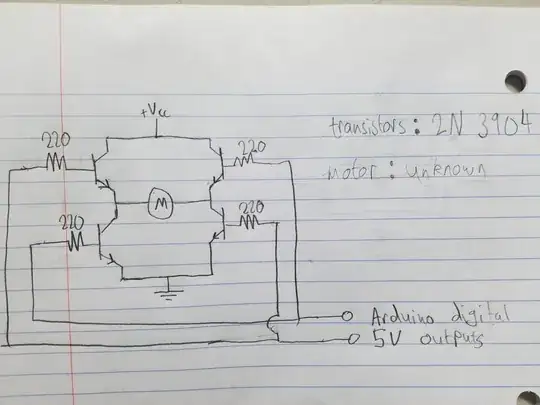 +Vcc
transistors: 2N 3904
220
220
motor: unknown
M
220
220
Arduino digital
5V outputs